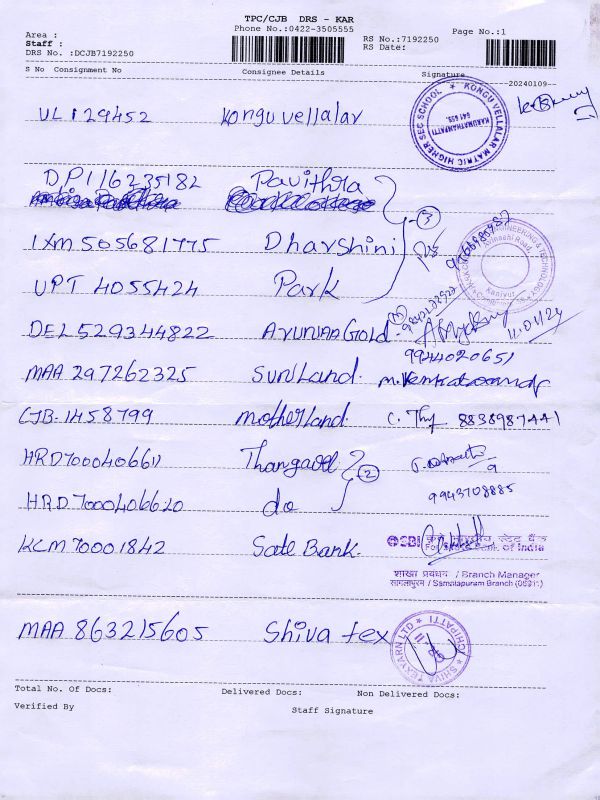 TPC/CJB DRS - KAR
Area :
Phone No.:0422-3505555
RS No.:7192250
Page No.:1
Staff :
RS Date:
DRS No. :DCJB7192250
S No Consignment No Consignee Details Signature
20240109
VL129452 Kongu vellalar
KONGU VELLALAR MATRIC HIGHER SEC SCHOOL
KARUMATHAMPATTI
641 659.
DP116235182 Pavithra
IXM505681775 Dharshini
3
UPT 4055424 Park
ENGINEERING & TECHNOLOGY
Avinashi Road,
Kaniyur
DEL529344822 ArunjaaGold
11/01/24
9944020651
MAA 297262325 SunLand.
CJB-1458799 motherland. 8838987441
HRD7000406611 Thangavel
2
HRD7000406620 do
9943708885
KCM70001842 Sate Bank.
SBI भारतीय स्टेट बैंक
For State Bank of India
शाखा प्रबंधक / Branch Manager
सामलापुरम / Samalapuram Branch
MAA 863215605 Shiva tex
SHIVA TEXYARN LTD
Total No. Of Docs: Delivered Docs: Non Delivered Docs:
Verified By
Staff Signature